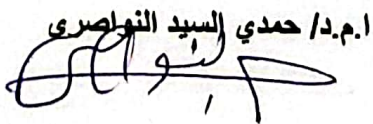 ا.م.د/ حمدي السيد النواصري